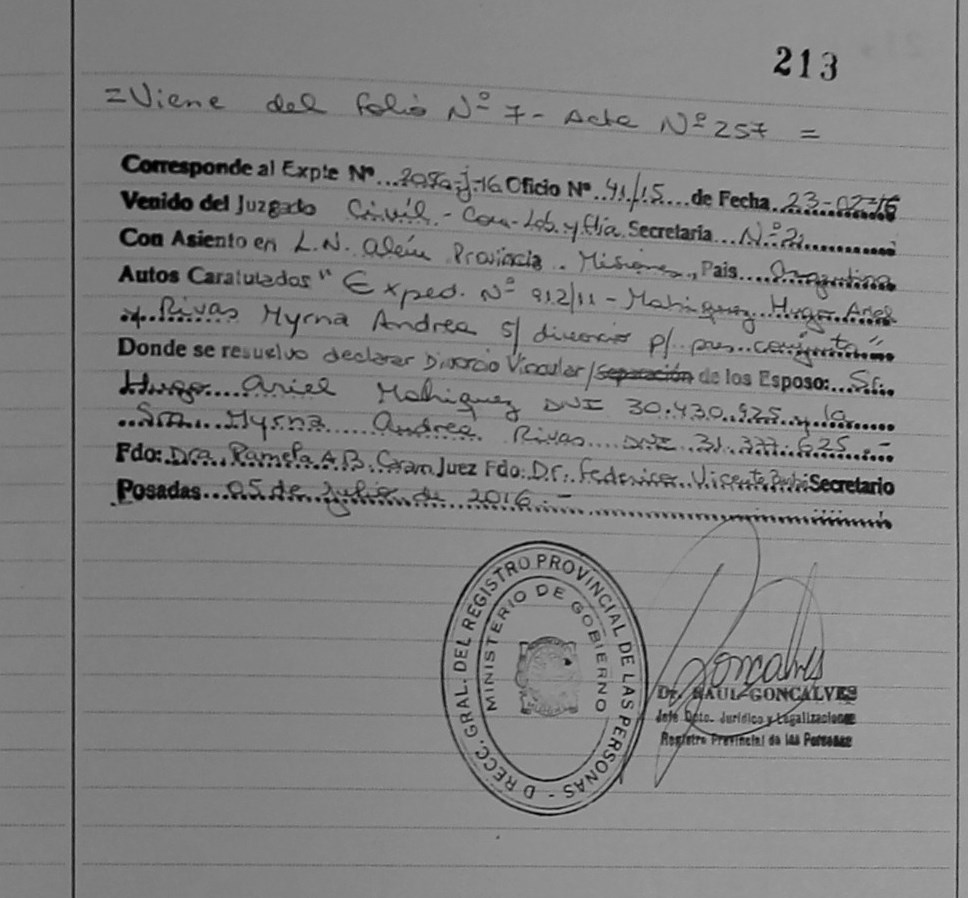 213
=Viene del folio Nº 7- Acta Nº 257 =
Corresponde al Expte Nº...2080-J-16 Oficio Nº..41/15...de Fecha..23-02-16
Venido del Juzgado Civil - Com-Lab. y flia. Secretaria...Nº2
Con Asiento en L.N. alem Provincia. Misiones, Pais...Argentina
Autos Caratulados " Exped. Nº 912/11 - Mahiquez Hugo Ariel
y Rivas Myrna Andrea s/ divorcio p/ pres. conjunta"
Donde se resuelve declarar Divorcio Vincular/Separación de los Esposo: Sr.
Hugo Ariel Mahiquez DNI 30.430.925 y la
Sra. Myrna Andrea Rivas DNI 31.377.625.-
Fdo: Dra. Pamela A.B. Juez Fdo: Dr. Federico Vicente Secretario
Posadas...05 de Julio de 2016.-
D RECC. GRAL. DEL REGISTRO PROVINCIAL DE LAS PERSONAS -
MINISTERIO DE GOBIERNO
Goncalves
Dr. RAUL GONCALVES
Jefe Dcto. Jurídico y Legalizaciones
Registro Provincial de las Personas